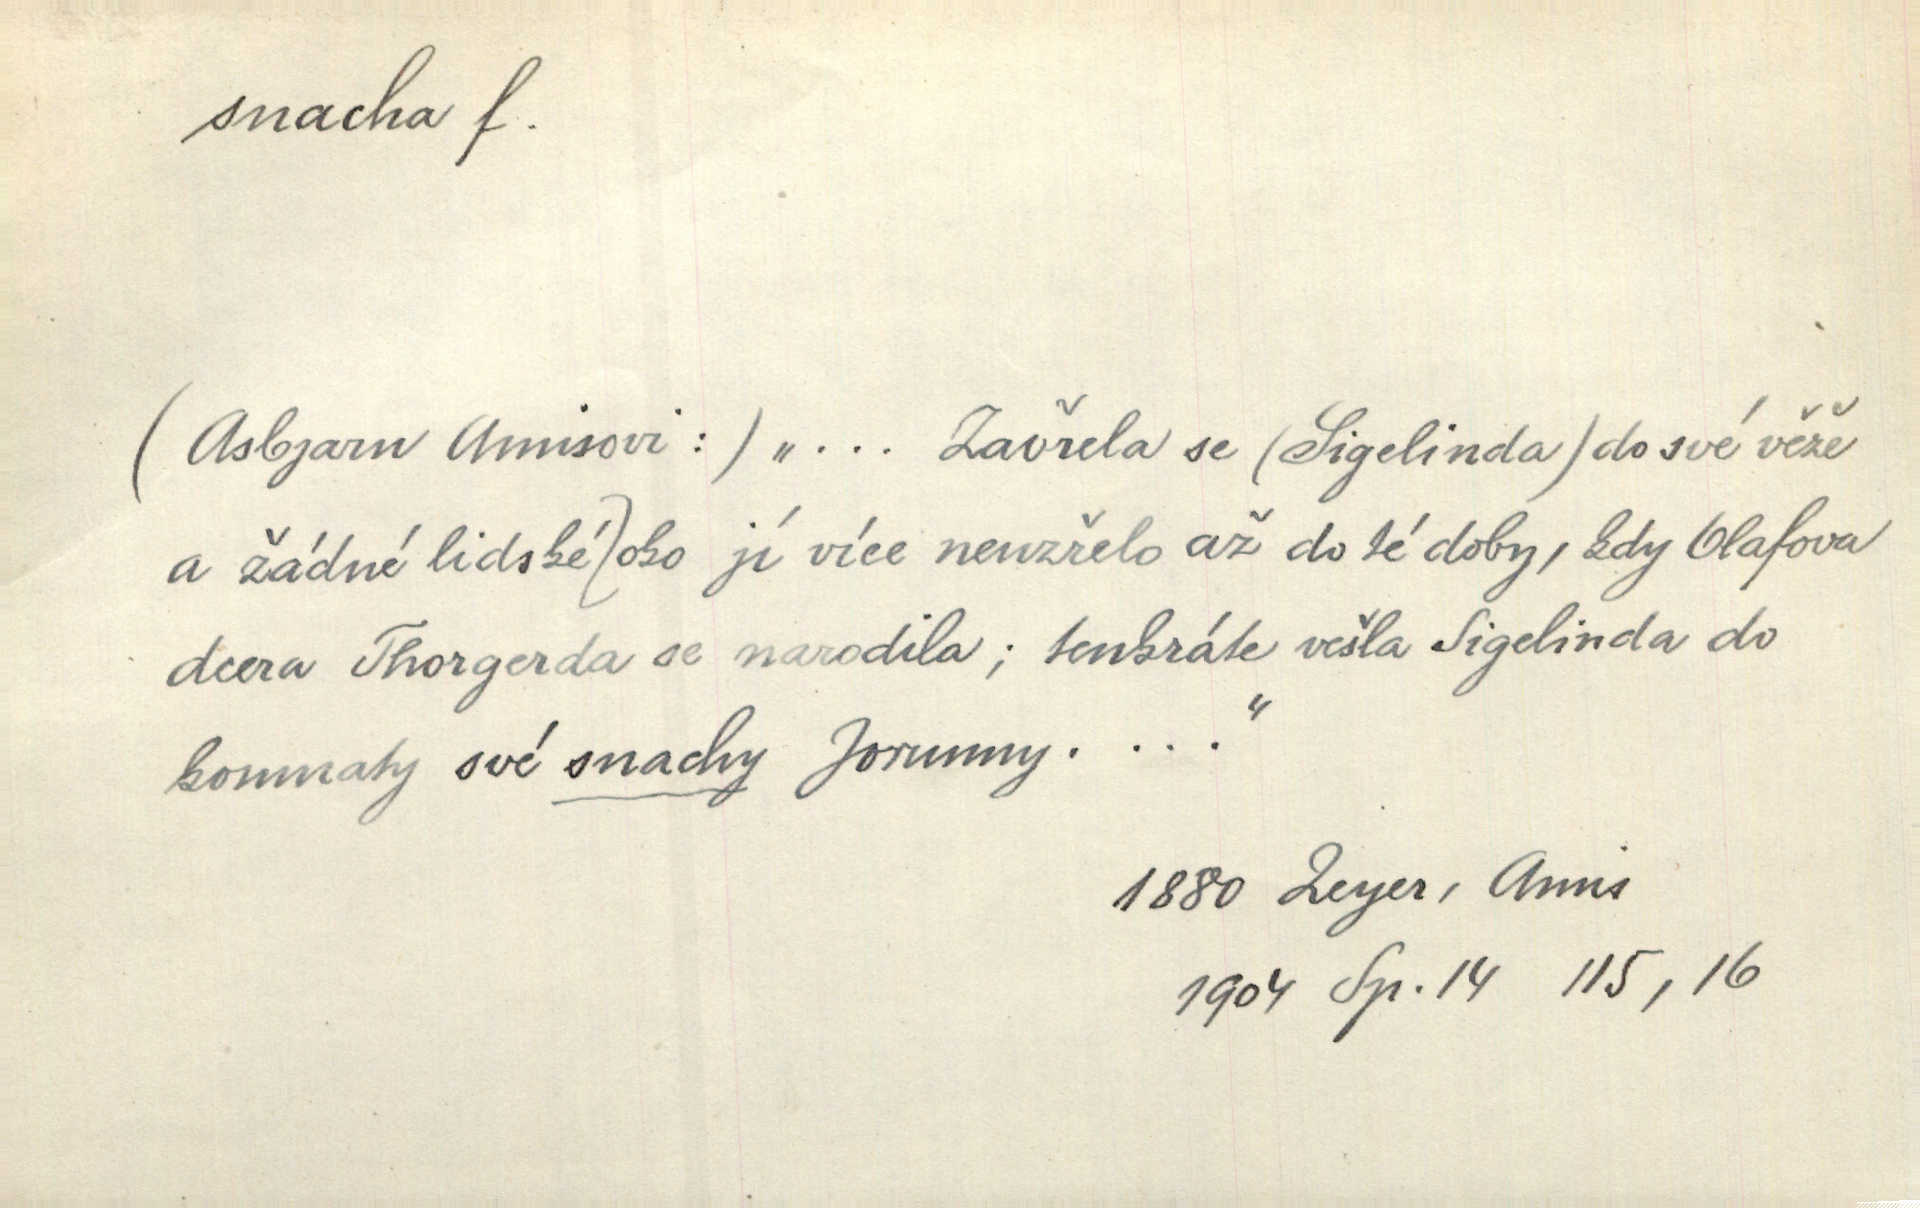 snacha f.
(Asbjarn Amisovi:) „... Zavřela se (Sigelinda) do své věže
a žádné lidské) oko jí více neuzřelo až do té doby, kdy Olafova
dcera Thorgerda se narodila; tenkráte vešla Sigelinda do
komnaty své snachy Jorunny. ..."
1880 Zeyer, Amis
1904 Sp. 14 115, 16